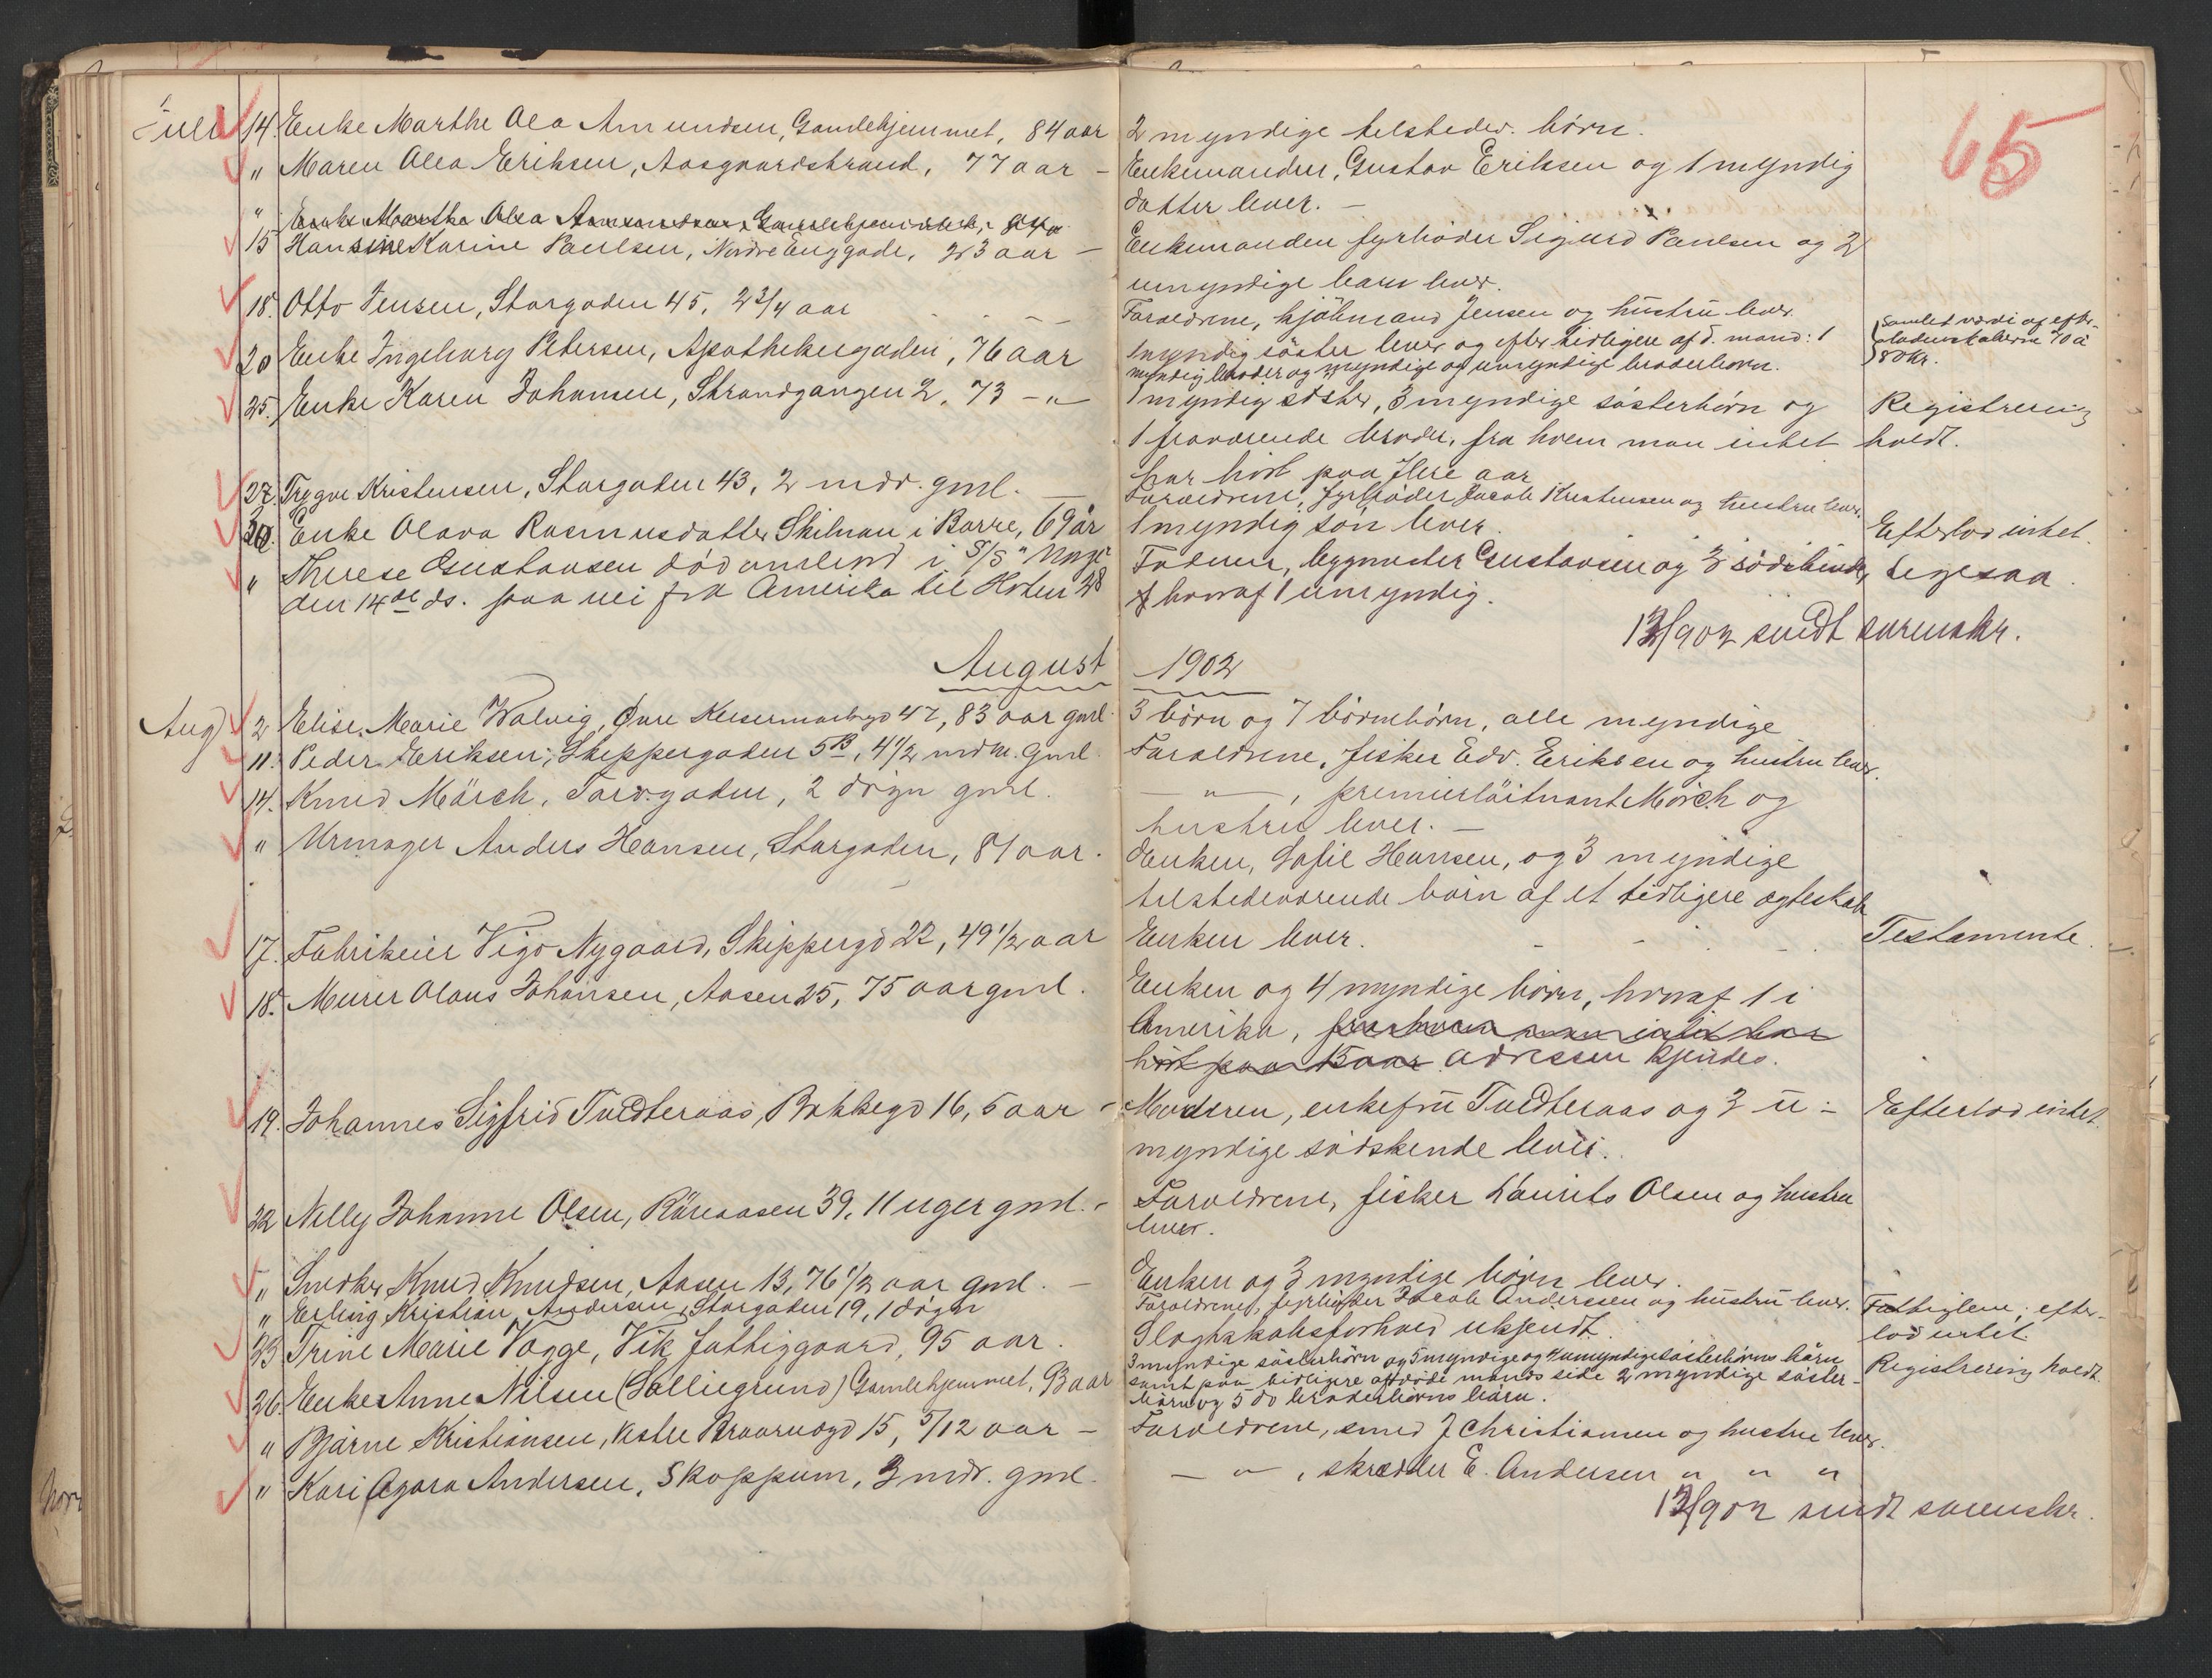 65
Juli 14. Enke Marthe Alea Amundsen, Gamlehjemmet, 84 aar
2 myndige tilstedev. børn.
" Maren Alea Eriksen, Aasgaardstrand, 77 aar –
Enkemanden, Gustav Eriksen og 1 myndig
datter lever. –
" Enke Marthe Alea Amundsen, Gamlehjemmet, 84 a
15 Hansine Karine Paulsen, Nordre Enggade, 23 aar –
Enkemanden fyrbøder Sigurd Paulsen og 2
umyndige barn lever.
18. Otto Jensen, Storgaden 45, 2 3/4 aar
Forældrene, kjøbmand Jensen og hustru lever.
20 Enke Ingeborg Petersen, Apothekergaden, 76 aar
1 myndig søster lever og efter tidligere afd. mand: 1
myndig broder og myndige og umyndige broderbørn.
Samlet værdi af efter-
ladenskaberne 70 à
80 kr.
25. Enke Karen Johansen, Strandgangen 2, 73 – " –
1 myndig søster, 3 myndige søsterbørn og
1 fraværende broder, fra hvem man intet
har hørt paa flere aar
Registrering
holdt.
27. Trygve Kristensen, Storgaden 43, 2 mdr. gml. –
Forældrene, fyrbøder Jacob Kristensen og hustru lever.
30. Enke Olava Rasmusdatter Skilnau i Borre, 69 år
1 myndig søn lever.
Efterlod intet.
" Therese Gustavsen død ombord i S/S "Norge"
den 14de ds. paa vei fra Amerika til Horten 28
Faderen, bygmester Gustavsen og 3 sødskende,
hvoraf 1 umyndig.
Ligesaa.
12/9 02 sendt sorenskr.
August 1902
Aug 2 Elise Marie Walvig, Øvre Keisermarkgd 47, 83 aar gml.
3 børn og 7 børnebørn, alle myndige
11. Peder Eriksen, Skippergaden 5B, 4 1/2 mdr. gml.
Forældrene, fisker Edv. Eriksen og hustru lever.
14. Knud Mörch, Torvgaden, 2 døgn gml.
– " –, premierløitnant Mörch og
hustru lever. –
" Urmager Anders Hansen, Storgaden, 81 aar.
Enken, Sofie Hansen, og 3 myndige
tilstedeværende børn af et tidligere ægteskab
17. Fabrikeier Vigo Nygaard, Skippergd 22, 49 1/2 aar
Enken lever.
Testamente.
18. Murer Olaus Johansen, Aasen 25, 75 aar gml.
Enken og 4 myndige børn, hvoraf 1 i
Amerika, fra hvem man intet har
hørt paa 15 aar adressen kjendes.
19. Johannes Sigfrid Tvedteraas, Bakkegd 16, 5 aar –
Moderen, enkefru Tvedteraas og 3 u-
myndige sødskende lever.
Efterlod intet.
22 Nelly Johanne Olsen, Røreaasen 39, 11 uger gml. –
Forældrene, fisker Laurits Olsen og hustru
lever.
" Snedker Knud Knudsen, Aasen 13, 76 1/2 aar gml. –
Enken og 3 myndige børn lever.
" Erling Kristian Andersen, Storgaden 19, 1 døgn
Forældrene, fyrbøder Jacob Andersen og hustru lever.
23 Trine Marie Vagge, Vik fattiggaard, 95 aar.
Slagtskabsforhold ukjendt.
Fattiglem; efter-
lod intet.
26. Enke Anne Nilsen (Sølliegrund) Gamlehjemmet, 93 aar
3 myndige søsterbørn og 5 myndige og 4 umyndige søsterbørns børn
samt paa tidligere afdøde mands side 2 myndige søster-
børn og 5 do broderbørns børn.
Registrering holdt
" Bjarne Kristiansen, Vestre Braarudgd 15, 5/12 aar –
Forældrene, smed J Christiansen og hustru lever.
" Kari Agara Andersen, Skoppum, 3 mdr. gml.
– " –, skrædder E. Andersen " " "
12/9 02 sendt sorenskr.